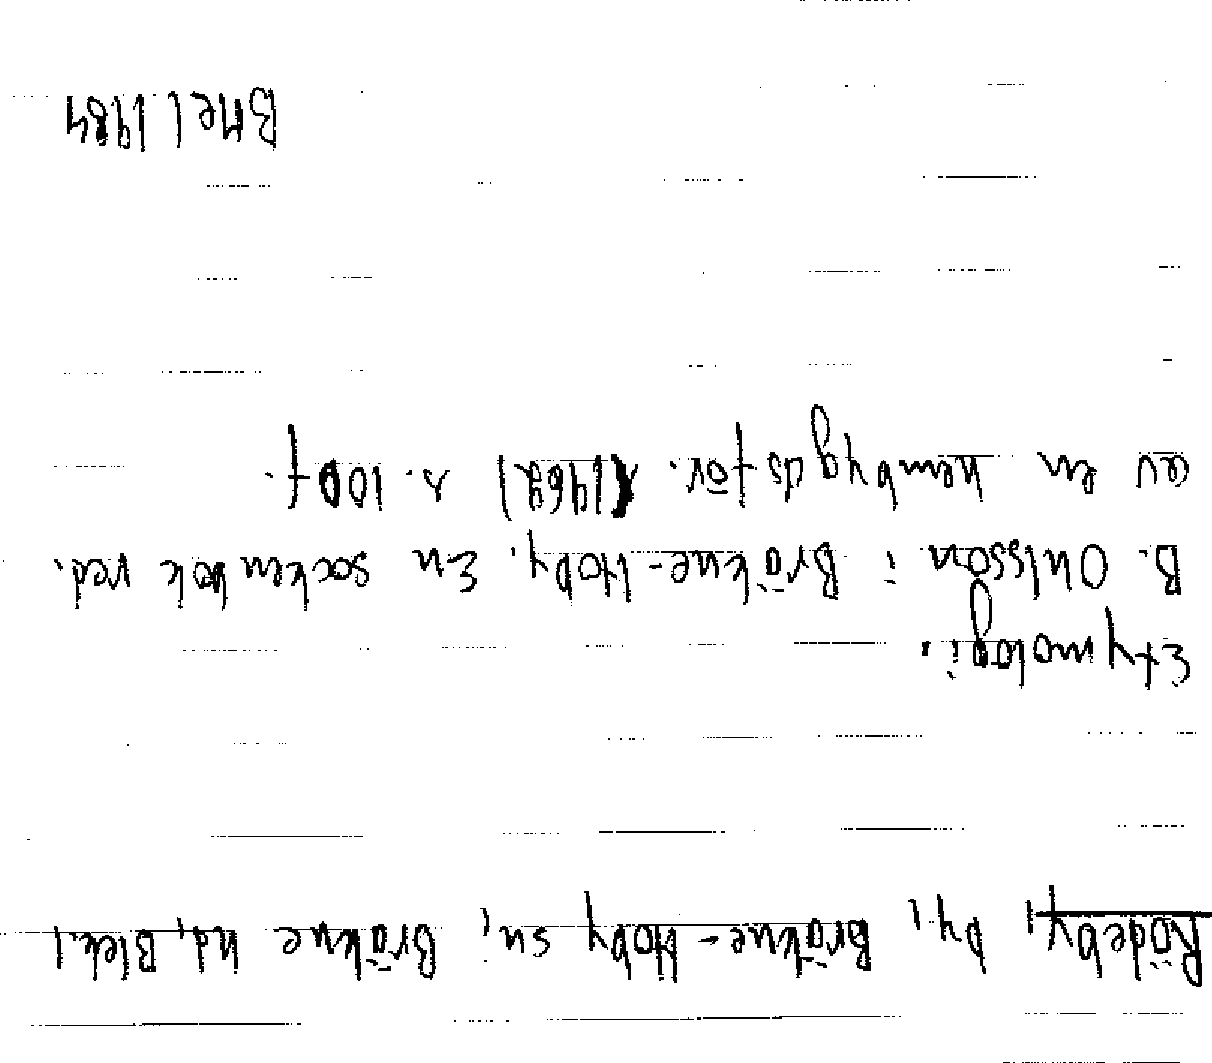 Rödeby, by, Bräkne-Hoby sn, Bräkne hd, Blek.l
Etymologi.
B. Ohlsson i Bräkne-Hoby. En sockenbok red.
av en hembygdsför. (1962) s. 100f.
BHel 1984